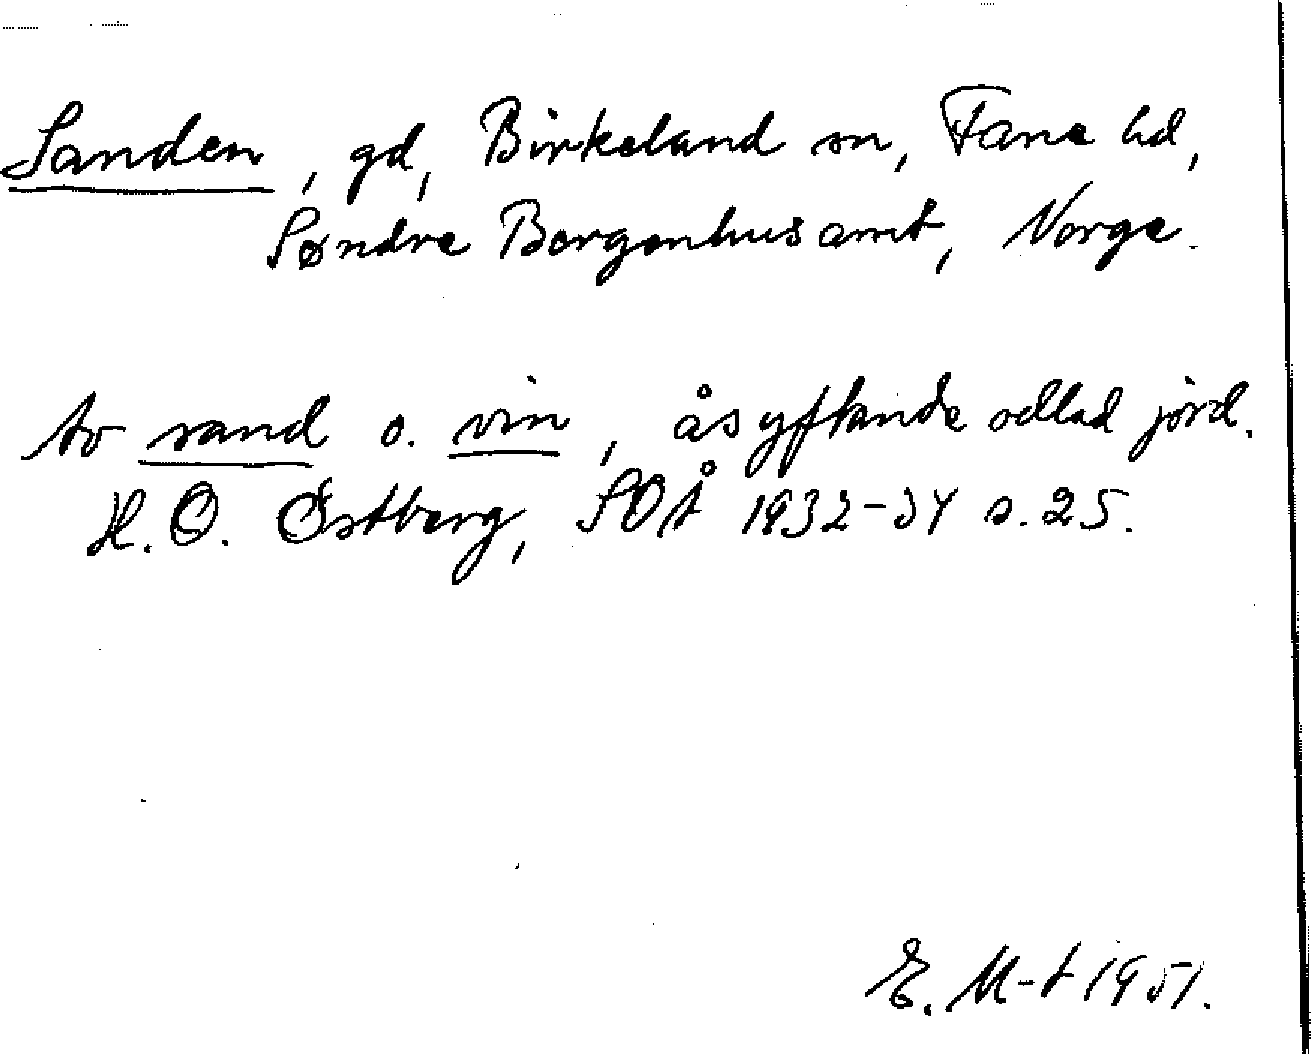 Sanden, gd, Birkeland sn, Fane hd,
Søndre Bergenhus amt, Norge.
Av sand o. vin, åsyftande odlad jord.
H. O. Östberg, SOÅ 1932-34 s. 25.
E. M-t 1951.